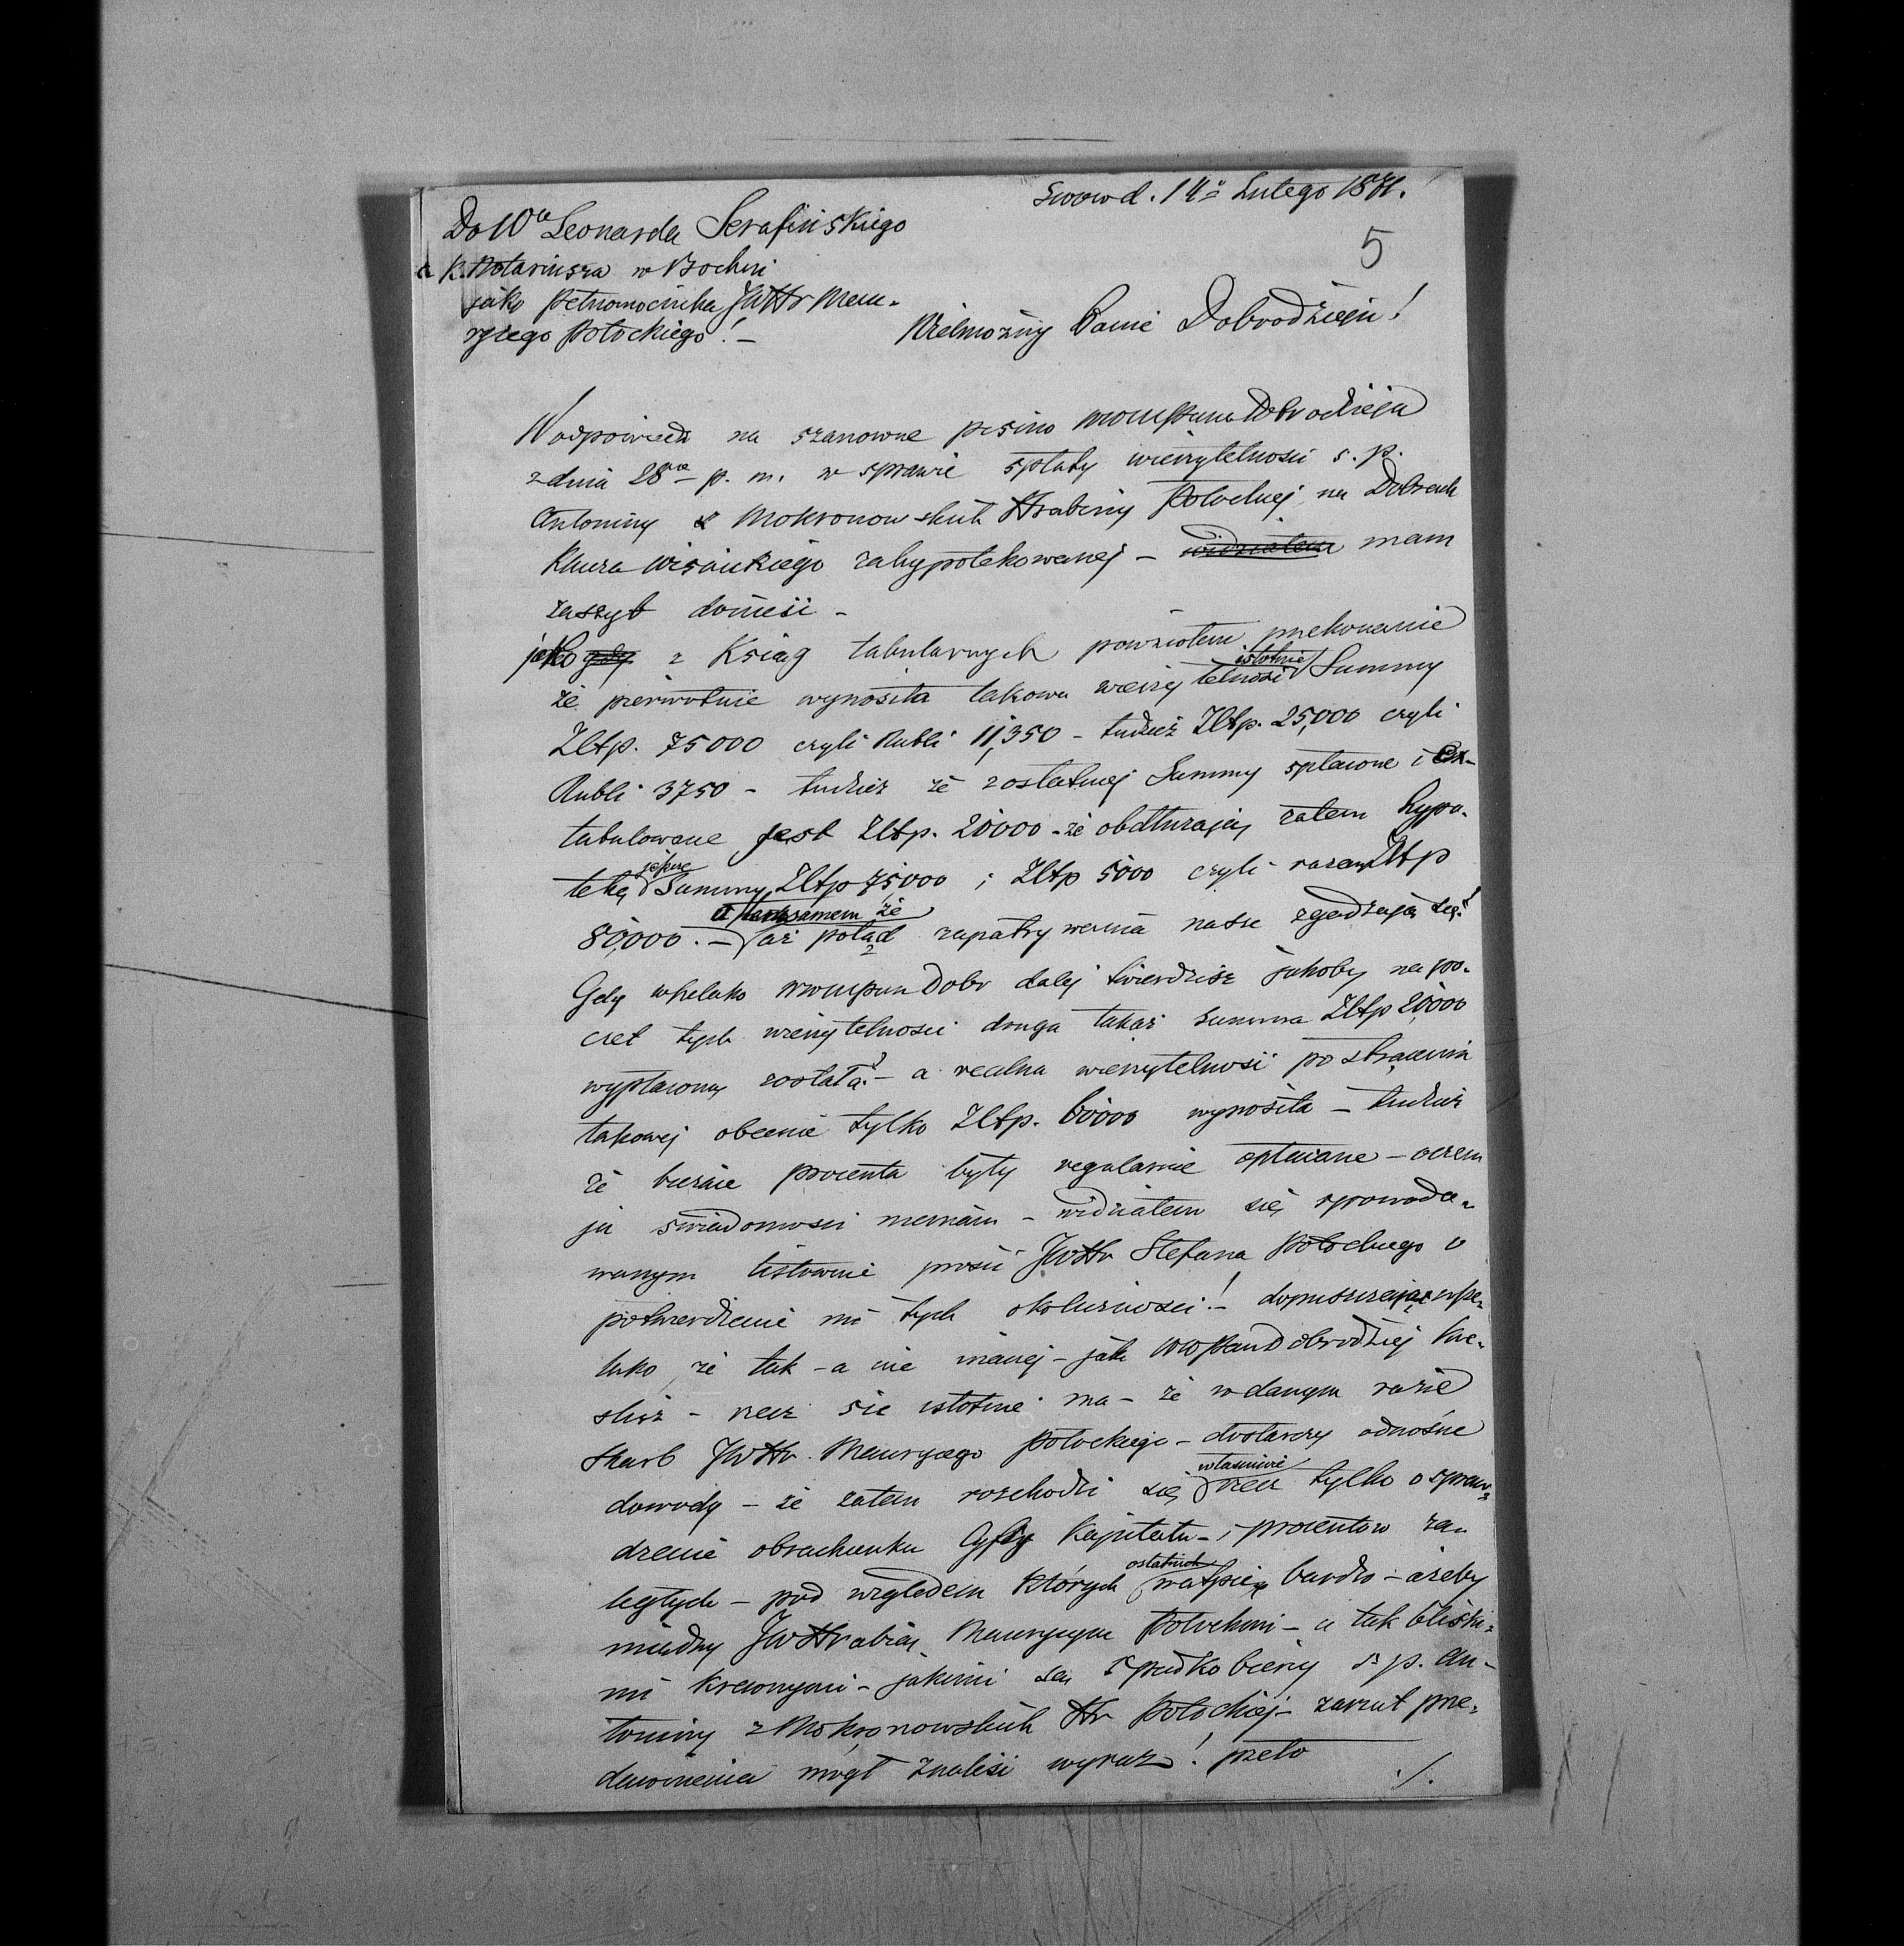 Lwow d. 14º Lutego 1871.
5
Do Wo Leonarda Serafińskiego
c k. Notariusza w Bochni
jako pełnomocnika JWHr Mau-
rycego Potockiego! –
Wielmożny Panie Dobrodzieju!
W odpowiedzi na szanowne pismo Dobrodzieja
z dnia 28go p. m. w sprawie spłaty wierzytelności s. p.
Antoniny z Mokronowskich Hrabiny Potockiej, na Dobrach
Klucza zahypotekowanej – widziałem mam
zaszyt donieść –
jako gdy z Ksiąg tabularnych powziołem przekonanie
że pierwotnie wynosiła takowa wierzytelność istotnie Summy
Zltp. 75000 czyli Rubli 11,350 – tudzież Zltp. 25,000 czyli
Rubli 3750 – tudzież że z ostatniej Summy spłacone i ex-
tabulowane jest Zltp. 20000 – że obdłużają zatem hypo-
tekę Summy Zltp 75,000 i Zltp 5000 czyli razem Zltp
80,000. – a temsamem że aż potąd zapatrywania nasze zgadzają się!
Gdy wszelako Dobr dalej twierdzisz jakoby na po-
czet tych wierzytelności druga takaż summa Zltp 20,000
wypłacony została! – a realna wierzytelność po strąceniu
takowej obecnie tylko Zltp. 60000 wynosiła – tudzież
że bieżące procenta były regularnie opłacane – oczem
ja świadomości niemam – widziałem się spowodo-
wanym listownie prosić JWHr Stefana Potockiego o
potwierdzenie mi tych okoliczności! – dopuszczając wsze-
lako, że tak – a nie inaczej – jak WPan Dobrodziej kre-
ślisz – rzecz się istotnie ma – że w danym razie
skarb JWHr. Maurycego Potockiego – dostarczy odnośne
dowody – że zatem rozchodzi się właściwie rzecz tylko o spraw-
dzenie obrachunku Cyfry Kapitału – i procentow za-
ległych – pod względem których ostatnich wątpię bardzo – ażeby
miedzy JWHrabią Maurycym Potockim – a tak bliski-
mi krewnymi – jakimi są spadkobiercy s. p. An-
toniny z Mokronowskich Hr Potockiej – zarzut prze-
dawnienia mógł znaleść wyraz! przeto
./.